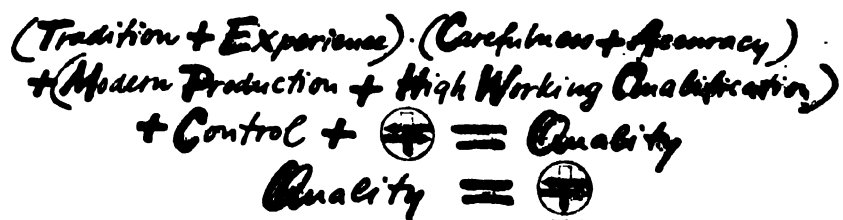 (Tradition + Experience) · (Carefulness + Accuracy)
+ (Modern Production + High Working Qualification)
+ Control + = Quality
Quality =